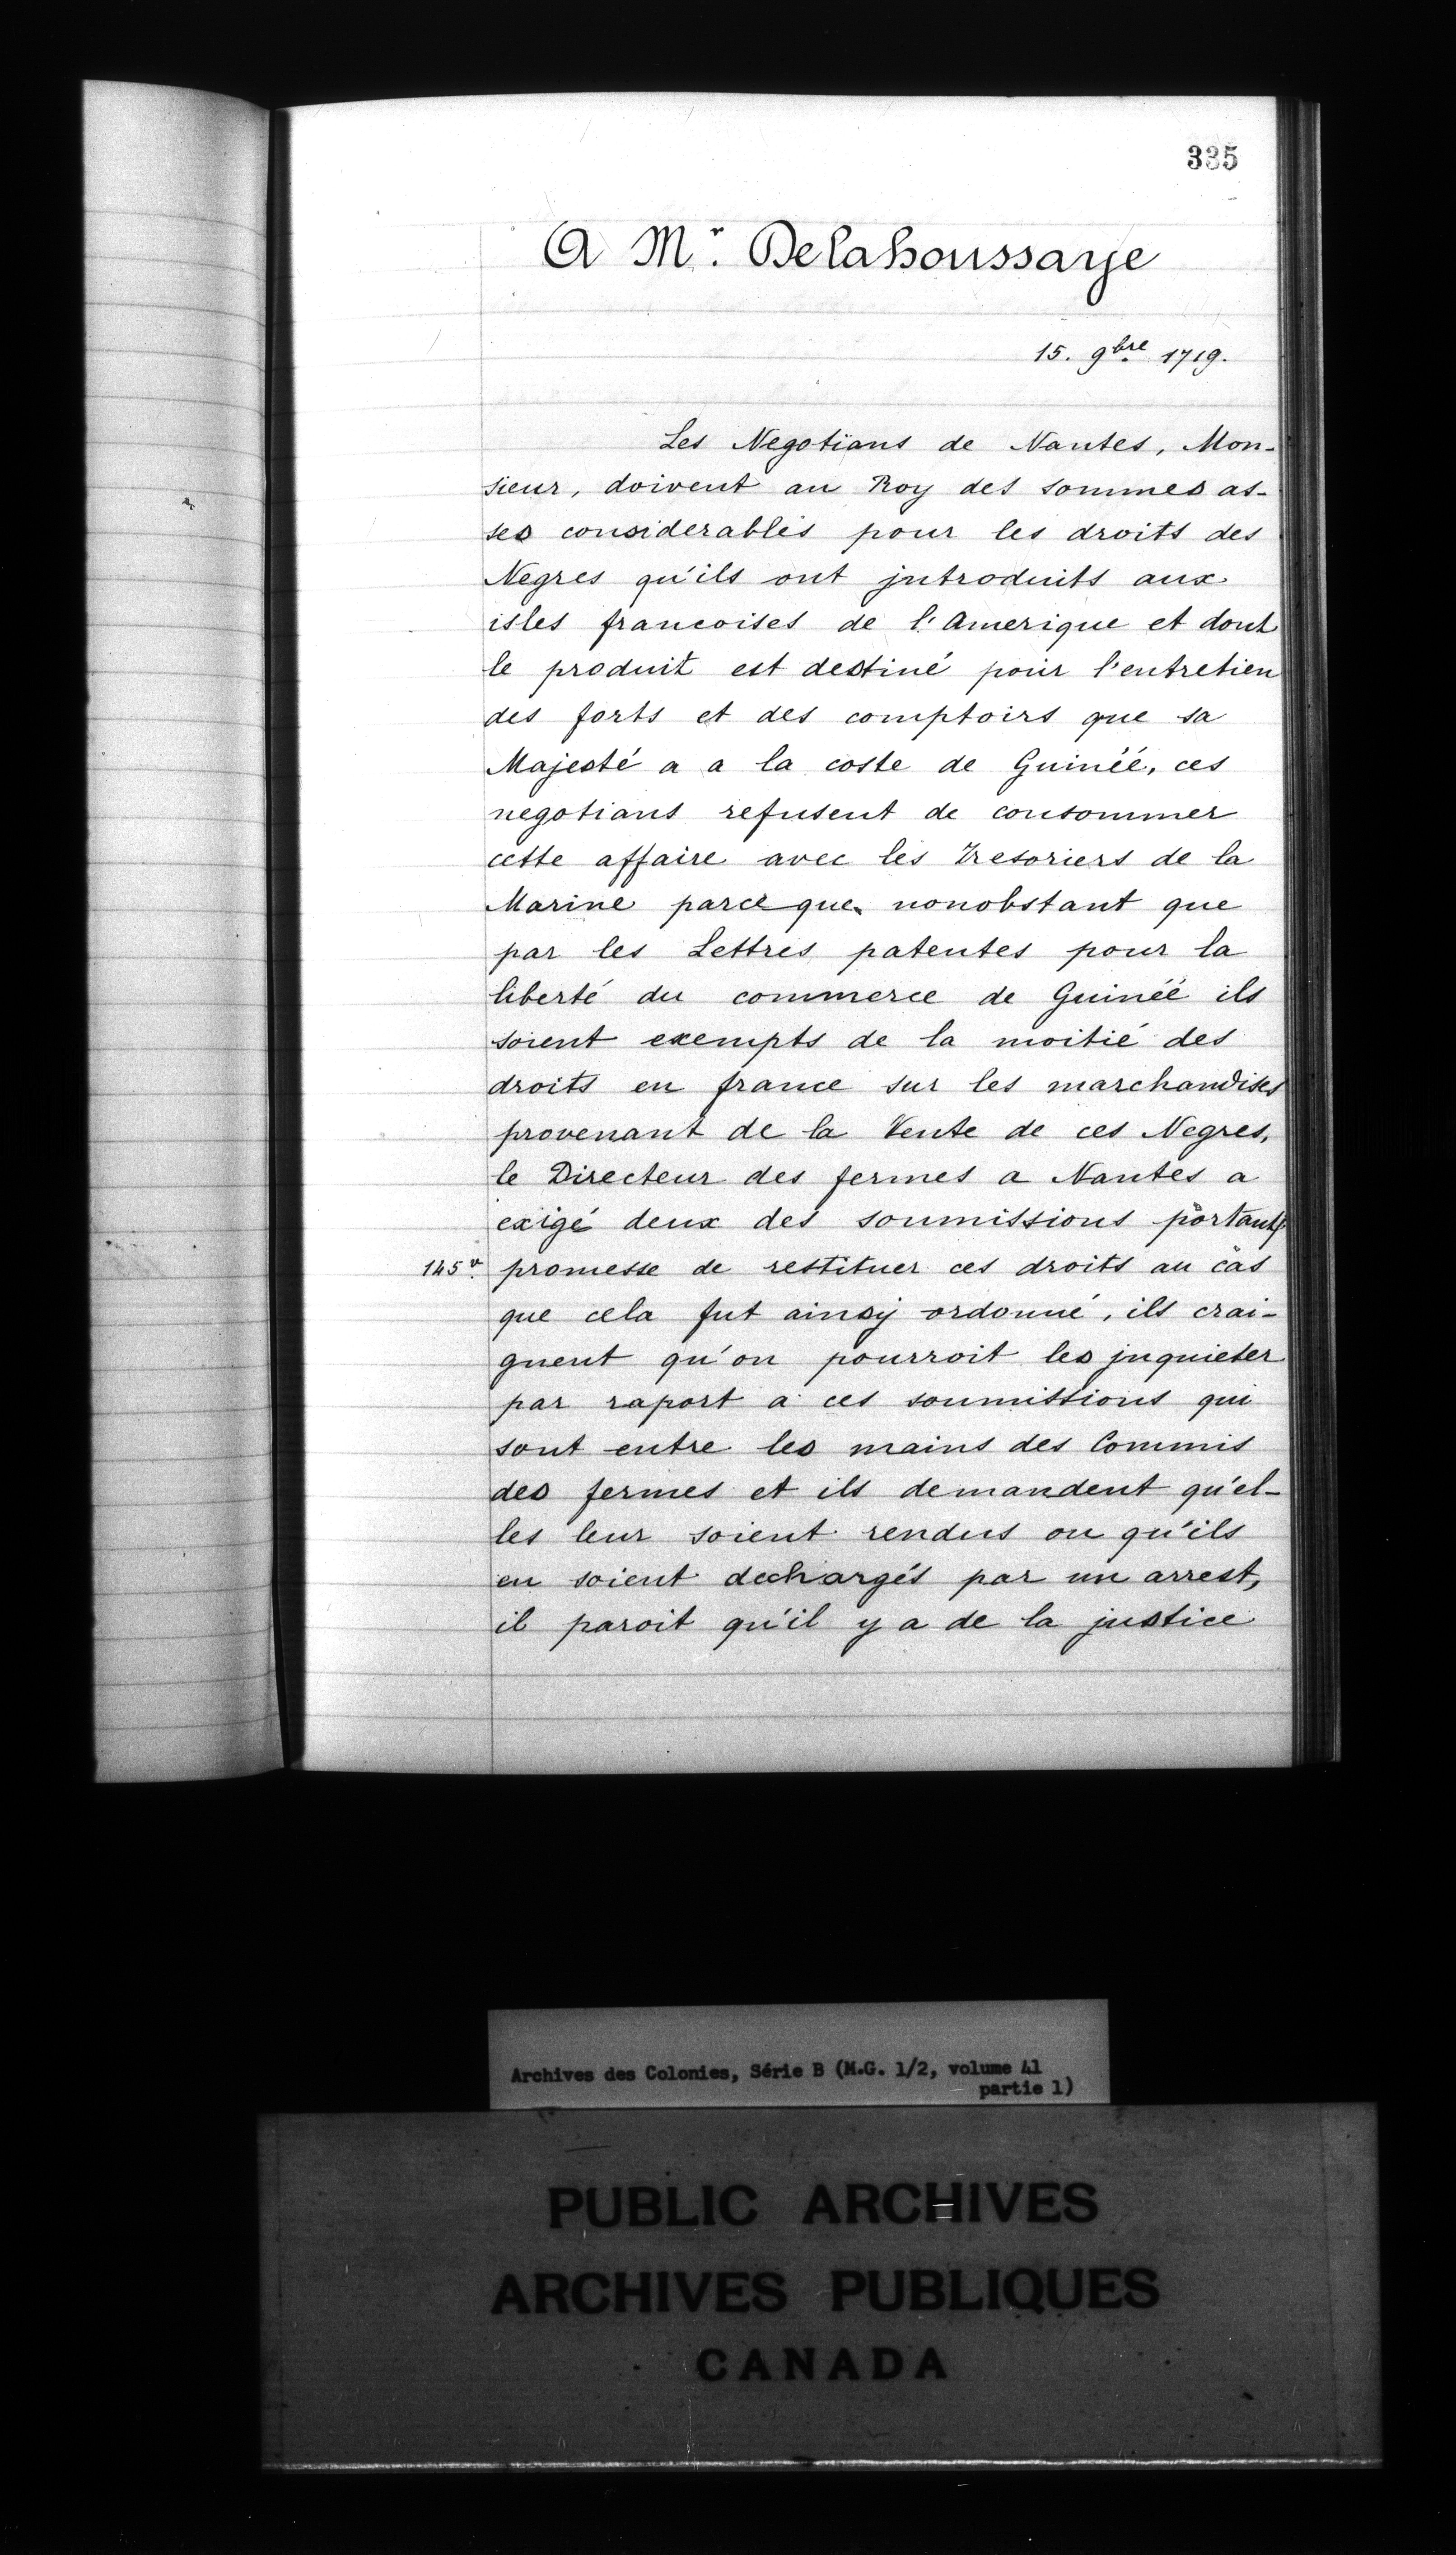 335
A Mr. Delahoussaye
15. 9bre. 1719.
Les Negotians de Nantes, Mon-
sieur, doivent au Roy des sommes as-
ses considerables pour les droits des
Negres qu'ils ont jntroduits aux
isles francoises de l'Amerique et dont
le produit est destiné pour l'entretien
des forts et des comptoirs que sa
Majesté a a la coste de Guinéé, ces
negotians refusent de consommer
cette affaire avec les Tresoriers de la
Marine parce que nonobstant que
par les Lettres patentes pour la
liberté du commerce de Guinéé ils
soient exempts de la moitié des
droits en france sur les marchandises
provenant de la Vente de ces Negres,
le Directeur des fermes a Nantes a
exigé deux des soumissions portant
145v. promesse de restituer ces droits au cas
que cela fut ainsy ordonné, ils crai-
gnent qu'on pourroit les jnquieter
par raport a ces soumissions qui
sont entre les mains des Commis
des fermes et ils demandent qu'el-
les leur soient rendus ou qu'ils
en soient dechargés par un arrest,
il paroit qu'il y a de la justice
Archives des Colonies, Série B (M.G. 1/2, volume 41
partie 1)
PUBLIC ARCHIVES
ARCHIVES PUBLIQUES
CANADA